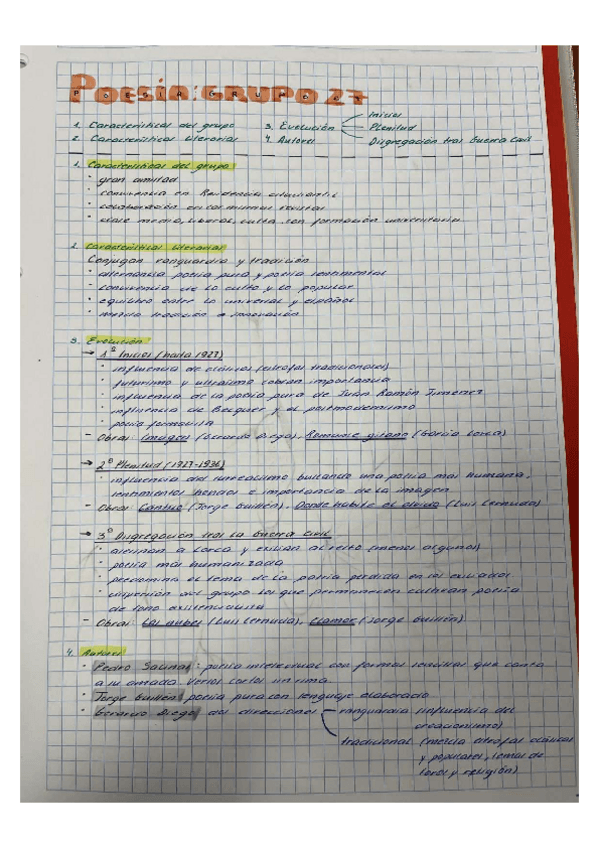 POESÍA: GRUPO 27
1. Características del grupo
2. Características literarias
3. Evolución
Inicios
Plenitud
Disgregación tras Guerra Civil
4. Autores
1. Características del grupo:
· gran amistad
· convivencia en Residencia estudiantil
· colaboración en las mismas revistas
· clase media, liberal, culta con formación universitaria
2. Características literarias
Conjugan vanguardia y tradición
· alternancia poesía pura y poesía sentimental
· convivencia de lo culto y lo popular
· equilibrio entre lo universal y español
· mezcla tradición e innovación
3. Evolución:
→ 1º Inicios (hasta 1927)
· influencia de clásicos (estrofas tradicionales)
· futurismo y ultraísmo cobran importancia
· influencia de la poesía pura de Juan Ramón Jimenez
· influencia de Becquer y el postmodernismo
· poesía formalista
- Obras: Imagen (Gerardo Diego), Romance gitano (García Lorca)
→ 2º Plenitud (1927-1936)
· influencia del surrealismo buscando una poesía más humana,
sentimientos hondos e importancia de la imagen
- Obras: Cántico (Jorge Guillén), Donde habite el olvido (Luis Cernuda)
→ 3º Disgregación tras la Guerra Civil
· asesinan a Lorca y exilian al resto (menos algunos)
· poesía más humanizada
· predomina el tema de la patria perdida en los exiliados
· dispersión del grupo los que permanecen cultivan poesía
de tono existencialista
- Obras: Las nubes (Luis Cernuda), Clamor (Jorge Guillén)
4. Autores
· Pedro Salinas: poesía intelectual con formas sencillas que canta
a su amada. Versos cortos sin rima.
· Jorge Guillén: poesía pura con lenguaje elaborado
· Gerardo Diego: dos direcciones
vanguardia (influencia del
creacionismo)
tradicional (mezcla estrofas clásicas
y populares, temas de
toros y religión)